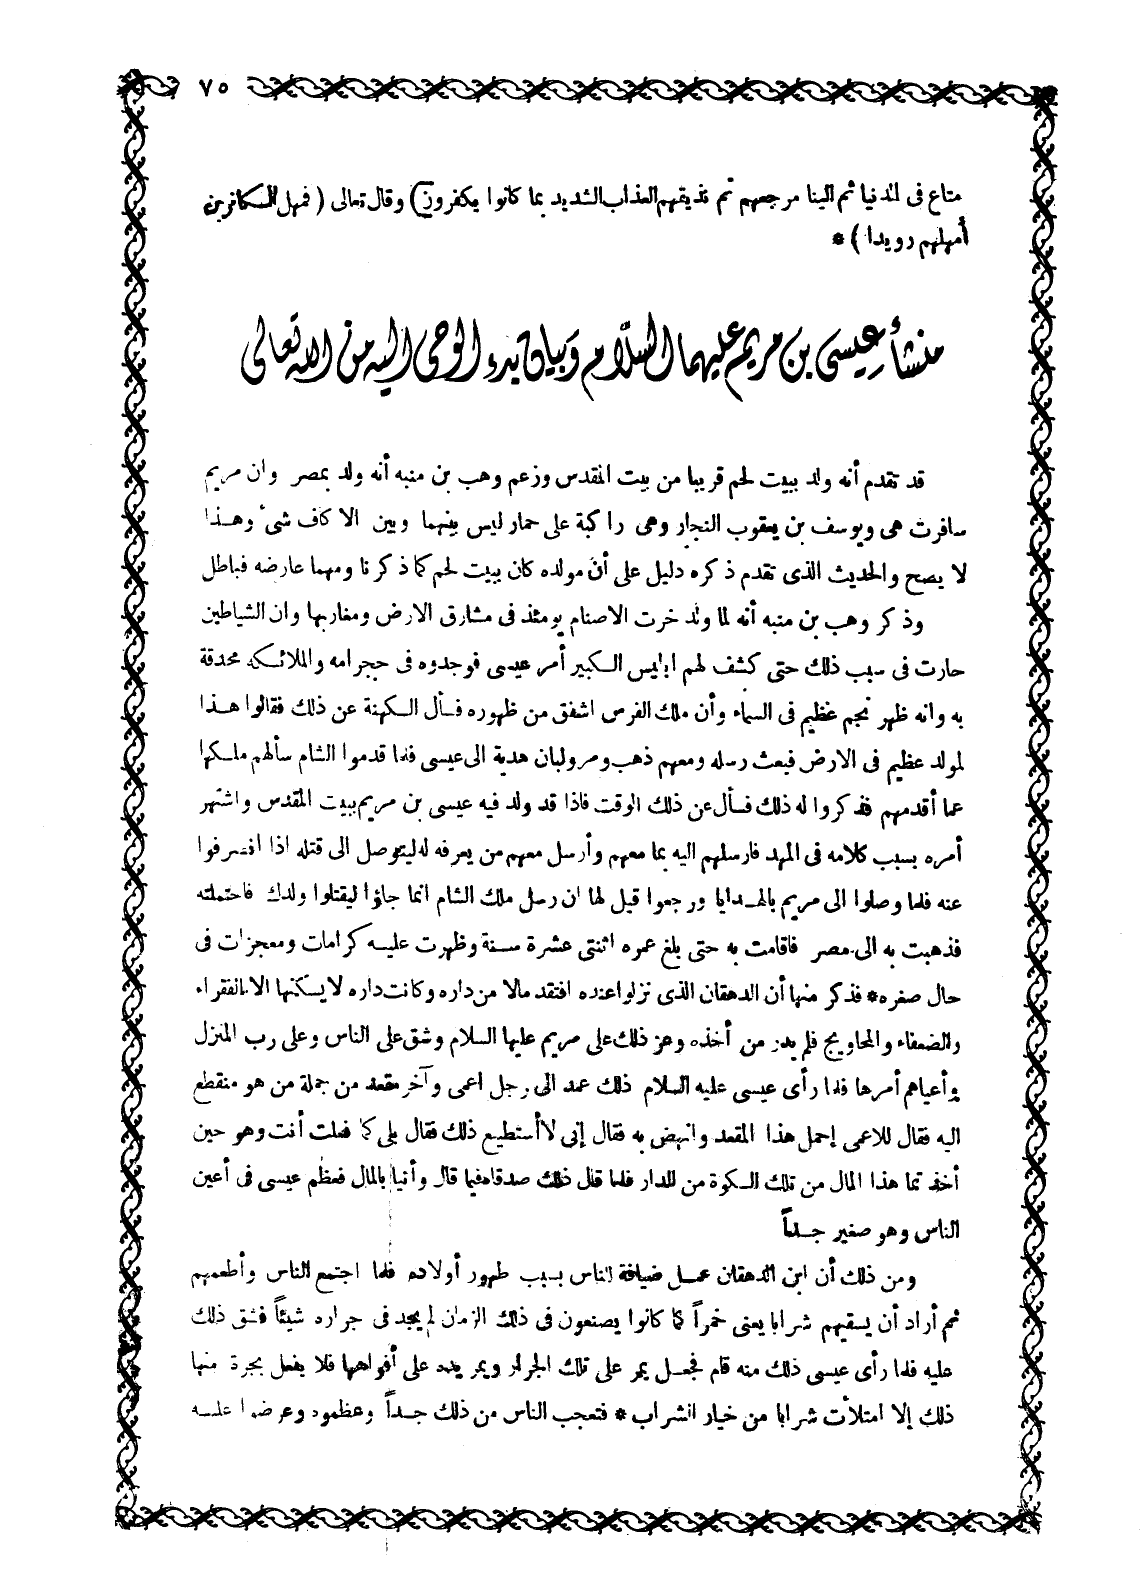 ٧٥
متاع فى الدنيا ثم الينا مرجعهم ثم نذيقهم العذاب الشديد بما كانوا يكفرون) وقال تعالى ( فمهل الكافرين
أمهلهم رويدا ) *
منشأ عيسى بن مريم عليهما السلام وبيان بدء الوحى اليه من الله تعالى
قد تقدم أنه ولد ببيت لحم قريبا من بيت المقدس وزعم وهب بن منبه أنه ولد بمصر وان مريم
سافرت هى ويوسف بن يعقوب النجار وهى راكبة على حمار ليس بينهما وبين الاكاف شىء وهذا
لا يصح والحديث الذى تقدم ذكره دليل على أن مولده كان ببيت لحم كما ذكرنا ومهما عارضه فباطل
وذكر وهب بن منبه أنه لما ولد خرت الاصنام يومئذ فى مشارق الارض ومغاربها وان الشياطين
حارت فى سبب ذلك حتى كشف لهم ابليس الكبير أمر عيسى فوجدوه فى حجر امه والملائكة محدقة
به وانه ظهر نجم عظيم فى السماء وأن ملك الفرس اشفق من ظهوره فسأل الكهنة عن ذلك فقالوا هذا
لمولد عظيم فى الارض فبعث رسله ومعهم ذهب ومر ولبان هدية الى عيسى فلما قدموا الشام سألهم ملكها
عما أقدمهم فذكروا له ذلك فسأل عن ذلك الوقت فاذا قد ولد فيه عيسى بن مريم ببيت المقدس واشتهر
أمره بسبب كلامه فى المهد فارسلهم اليه بما معهم وأرسل معهم من يعرفه له ليتوصل الى قتله اذا انصرفوا
عنه فلما وصلوا الى مريم بالهدايا ورجعوا قيل لها ان رسل ملك الشام انما جاؤا ليقتلوا ولدك فاحتملته
فذهبت به الى مصر فاقامت به حتى بلغ عمره اثنتى عشرة سنة وظهرت عليه كرامات ومعجزات فى
حال صغره* فذكر منها أن الدهقان الذى نزلوا عنده افتقد مالا من داره وكانت داره لا يسكنها الا الفقراء
والضعفاء والمحاويج فلم يدر من أخذه وعز ذلك على مريم عليها السلام وشق على الناس وعلى رب المنزل
وأعياهم أمرها فلما رأى عيسى عليه السلام ذلك عمد الى رجل اعمى وآخر مقعد من جملة من هو منقطع
اليه فقال للاعمى إحمل هذا المقعد وانهض به فقال إنى لا أستطيع ذلك فقال بلى كما فعلت أنت وهو حين
أخذتما هذا المال من تلك الكوة من الدار فلما قال ذلك صدقاه فيما قال وأتيا بالمال فعظم عيسى فى أعين
الناس وهو صغير جداً
ومن ذلك أن ابن الدهقان عمل ضيافة للناس بسبب طهور أولاده فلما اجتمع الناس وأطعمهم
ثم أراد أن يسقيهم شرابا يعنى خمراً كما كانوا يصنعون فى ذلك الزمان لم يجد فى جراره شيئاً فشق ذلك
عليه فلما رأى عيسى ذلك منه قام فجعل يمر على تلك الجرار ويمر يده على أفواهها فلا يفعل بجرة منها
ذلك إلا امتلأت شرابا من خيار الشراب * فتعجب الناس من ذلك جداً وعظموه وعرضوا عليه